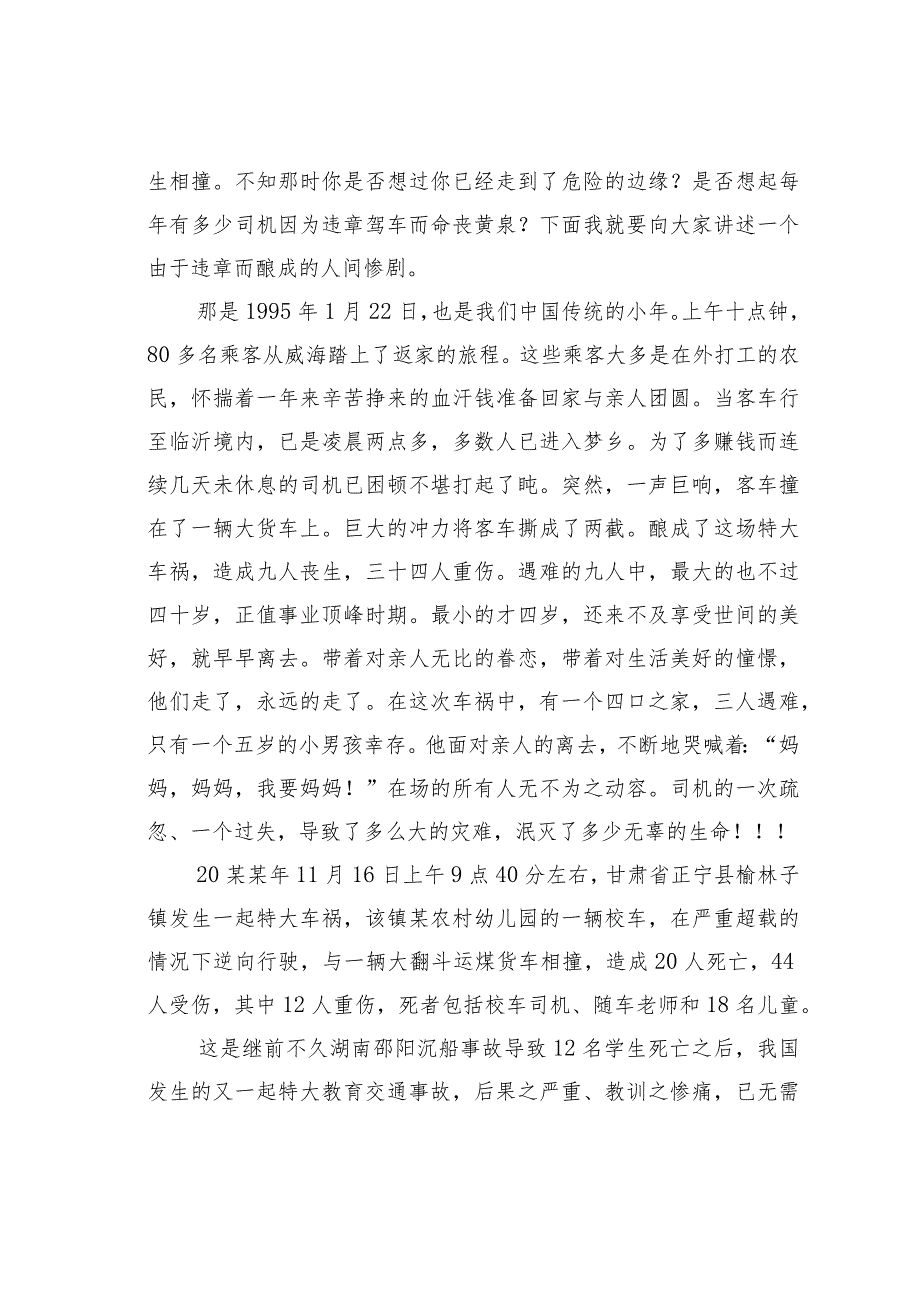 生相撞。不知那时你是否想过你已经走到了危险的边缘？是否想起每
年有多少司机因为违章驾车而命丧黄泉？下面我就要向大家讲述一个
由于违章而酿成的人间惨剧。
那是 1995 年 1 月 22 日，也是我们中国传统的小年。上午十点钟，
80 多名乘客从威海踏上了返家的旅程。这些乘客大多是在外打工的农
民，怀揣着一年来辛苦挣来的血汗钱准备回家与亲人团圆。当客车行
至临沂境内，已是凌晨两点多，多数人已进入梦乡。为了多赚钱而连
续几天未休息的司机已困顿不堪打起了盹。突然，一声巨响，客车撞
在了一辆大货车上。巨大的冲力将客车撕成了两截。酿成了这场特大
车祸，造成九人丧生，三十四人重伤。遇难的九人中，最大的也不过
四十岁，正值事业顶峰时期。最小的才四岁，还来不及享受世间的美
好，就早早离去。带着对亲人无比的眷恋，带着对生活美好的憧憬，
他们走了，永远的走了。在这次车祸中，有一个四口之家，三人遇难，
只有一个五岁的小男孩幸存。他面对亲人的离去，不断地哭喊着：“妈
妈，妈妈，我要妈妈！”在场的所有人无不为之动容。司机的一次疏
忽、一个过失，导致了多么大的灾难，泯灭了多少无辜的生命！！！
20 某某年 11 月 16 日上午 9 点 40 分左右，甘肃省正宁县榆林子
镇发生一起特大车祸，该镇某农村幼儿园的一辆校车，在严重超载的
情况下逆向行驶，与一辆大翻斗运煤货车相撞，造成 20 人死亡，44
人受伤，其中 12 人重伤，死者包括校车司机、随车老师和 18 名儿童。
这是继前不久湖南邵阳沉船事故导致 12 名学生死亡之后，我国
发生的又一起特大教育交通事故，后果之严重、教训之惨痛，已无需